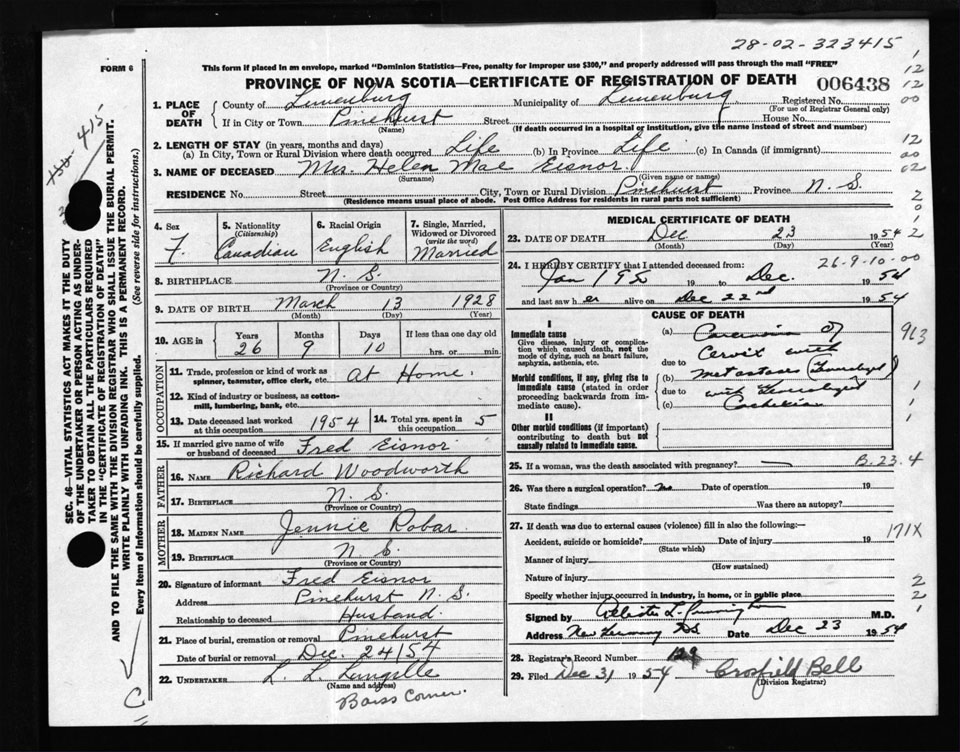 28-02-323415
FORM 6
This form if placed in an envelope, marked "Dominion Statistics—Free, penalty for improper use $300," and properly addressed will pass through the mail "FREE"
PROVINCE OF NOVA SCOTIA—CERTIFICATE OF REGISTRATION OF DEATH 006438
1. PLACE OF DEATH
County of Lunenburg Municipality of Lunenburg Registered No.
(For use of Registrar General only)
If in City or Town Pinehurst Street House No.
(Name) (If death occurred in a hospital or institution, give the name instead of street and number)
2. LENGTH OF STAY (in years, months and days)
(a) In City, Town or Rural Division where death occurred Life (b) In Province Life (c) In Canada (if immigrant)
3. NAME OF DECEASED Mrs. Helen Mae Eisnor
(Surname) (Given name or names)
RESIDENCE No. Street City, Town or Rural Division Pinehurst Province N. S.
(Residence means usual place of abode. Post Office Address for residents in rural parts not sufficient)
4. Sex F.
5. Nationality (Citizenship) Canadian
6. Racial Origin English
7. Single, Married, Widowed or Divorced (write the word) Married
8. BIRTHPLACE N. S.
(Province or Country)
9. DATE OF BIRTH March 13 1928
(Month) (Day) (Year)
10. AGE in Years 26 Months 9 Days 10 If less than one day old hrs. or min.
OCCUPATION
11. Trade, profession or kind of work as spinner, teamster, office clerk, etc. At Home.
12. Kind of industry or business, as cotton-mill, lumbering, bank, etc.
13. Date deceased last worked at this occupation 1954
14. Total yrs. spent in this occupation 5
15. If married give name of wife or husband of deceased Fred Eisnor
FATHER
16. NAME Richard Woodworth
17. BIRTHPLACE N. S.
(Province or Country)
MOTHER
18. MAIDEN NAME Jennie Robar
19. BIRTHPLACE N. S.
(Province or Country)
20. Signature of informant Fred Eisnor
Address Pinehurst N. S.
Relationship to deceased Husband.
21. Place of burial, cremation or removal Pinehurst
Date of burial or removal Dec. 24/54
22. UNDERTAKER L. L. Langille
(Name and address)
Barss Corner.
MEDICAL CERTIFICATE OF DEATH
23. DATE OF DEATH Dec 23 1954
(Month) (Day) (Year)
24. I HEREBY CERTIFY that I attended deceased from: 26-9-10-00
Jan 1952 19 to Dec. 1954
and last saw her alive on Dec 22nd 1954
CAUSE OF DEATH
I
Immediate cause
Give disease, injury or complication which caused death, not the mode of dying, such as heart failure, asphyxia, asthenia, etc.
Morbid conditions, if any, giving rise to immediate cause (stated in order proceeding backwards from immediate cause).
II
Other morbid conditions (if important) contributing to death but not causally related to immediate cause.
(a) Carcinoma of
Cervix with
due to
(b) metastases
due to with
(c) Cachexia
25. If a woman, was the death associated with pregnancy? B.23.4
26. Was there a surgical operation? no Date of operation 19
State findings Was there an autopsy?
27. If death was due to external causes (violence) fill in also the following:—
171X
Accident, suicide or homicide? Date of injury 19
(State which)
Manner of injury
(How sustained)
Nature of injury
Specify whether injury occurred in industry, in home, or in public place
Signed by M.D.
Address New Germany NS Date Dec 23 1954
28. Registrar's Record Number 129
29. Filed Dec 31 1954 Crosfield Bell
(Division Registrar)
SEC. 46—VITAL STATISTICS ACT MAKES IT THE DUTY OF THE UNDERTAKER OR PERSON ACTING AS UNDERTAKER TO OBTAIN ALL THE PARTICULARS REQUIRED IN THE "CERTIFICATE OF REGISTRATION OF DEATH" AND TO FILE THE SAME WITH THE DIVISION REGISTRAR WHO SHALL ISSUE THE BURIAL PERMIT.
WRITE PLAINLY WITH UNFADING INK. THIS IS A PERMANENT RECORD.
Every item of information should be carefully supplied. (See reverse side for instructions.)